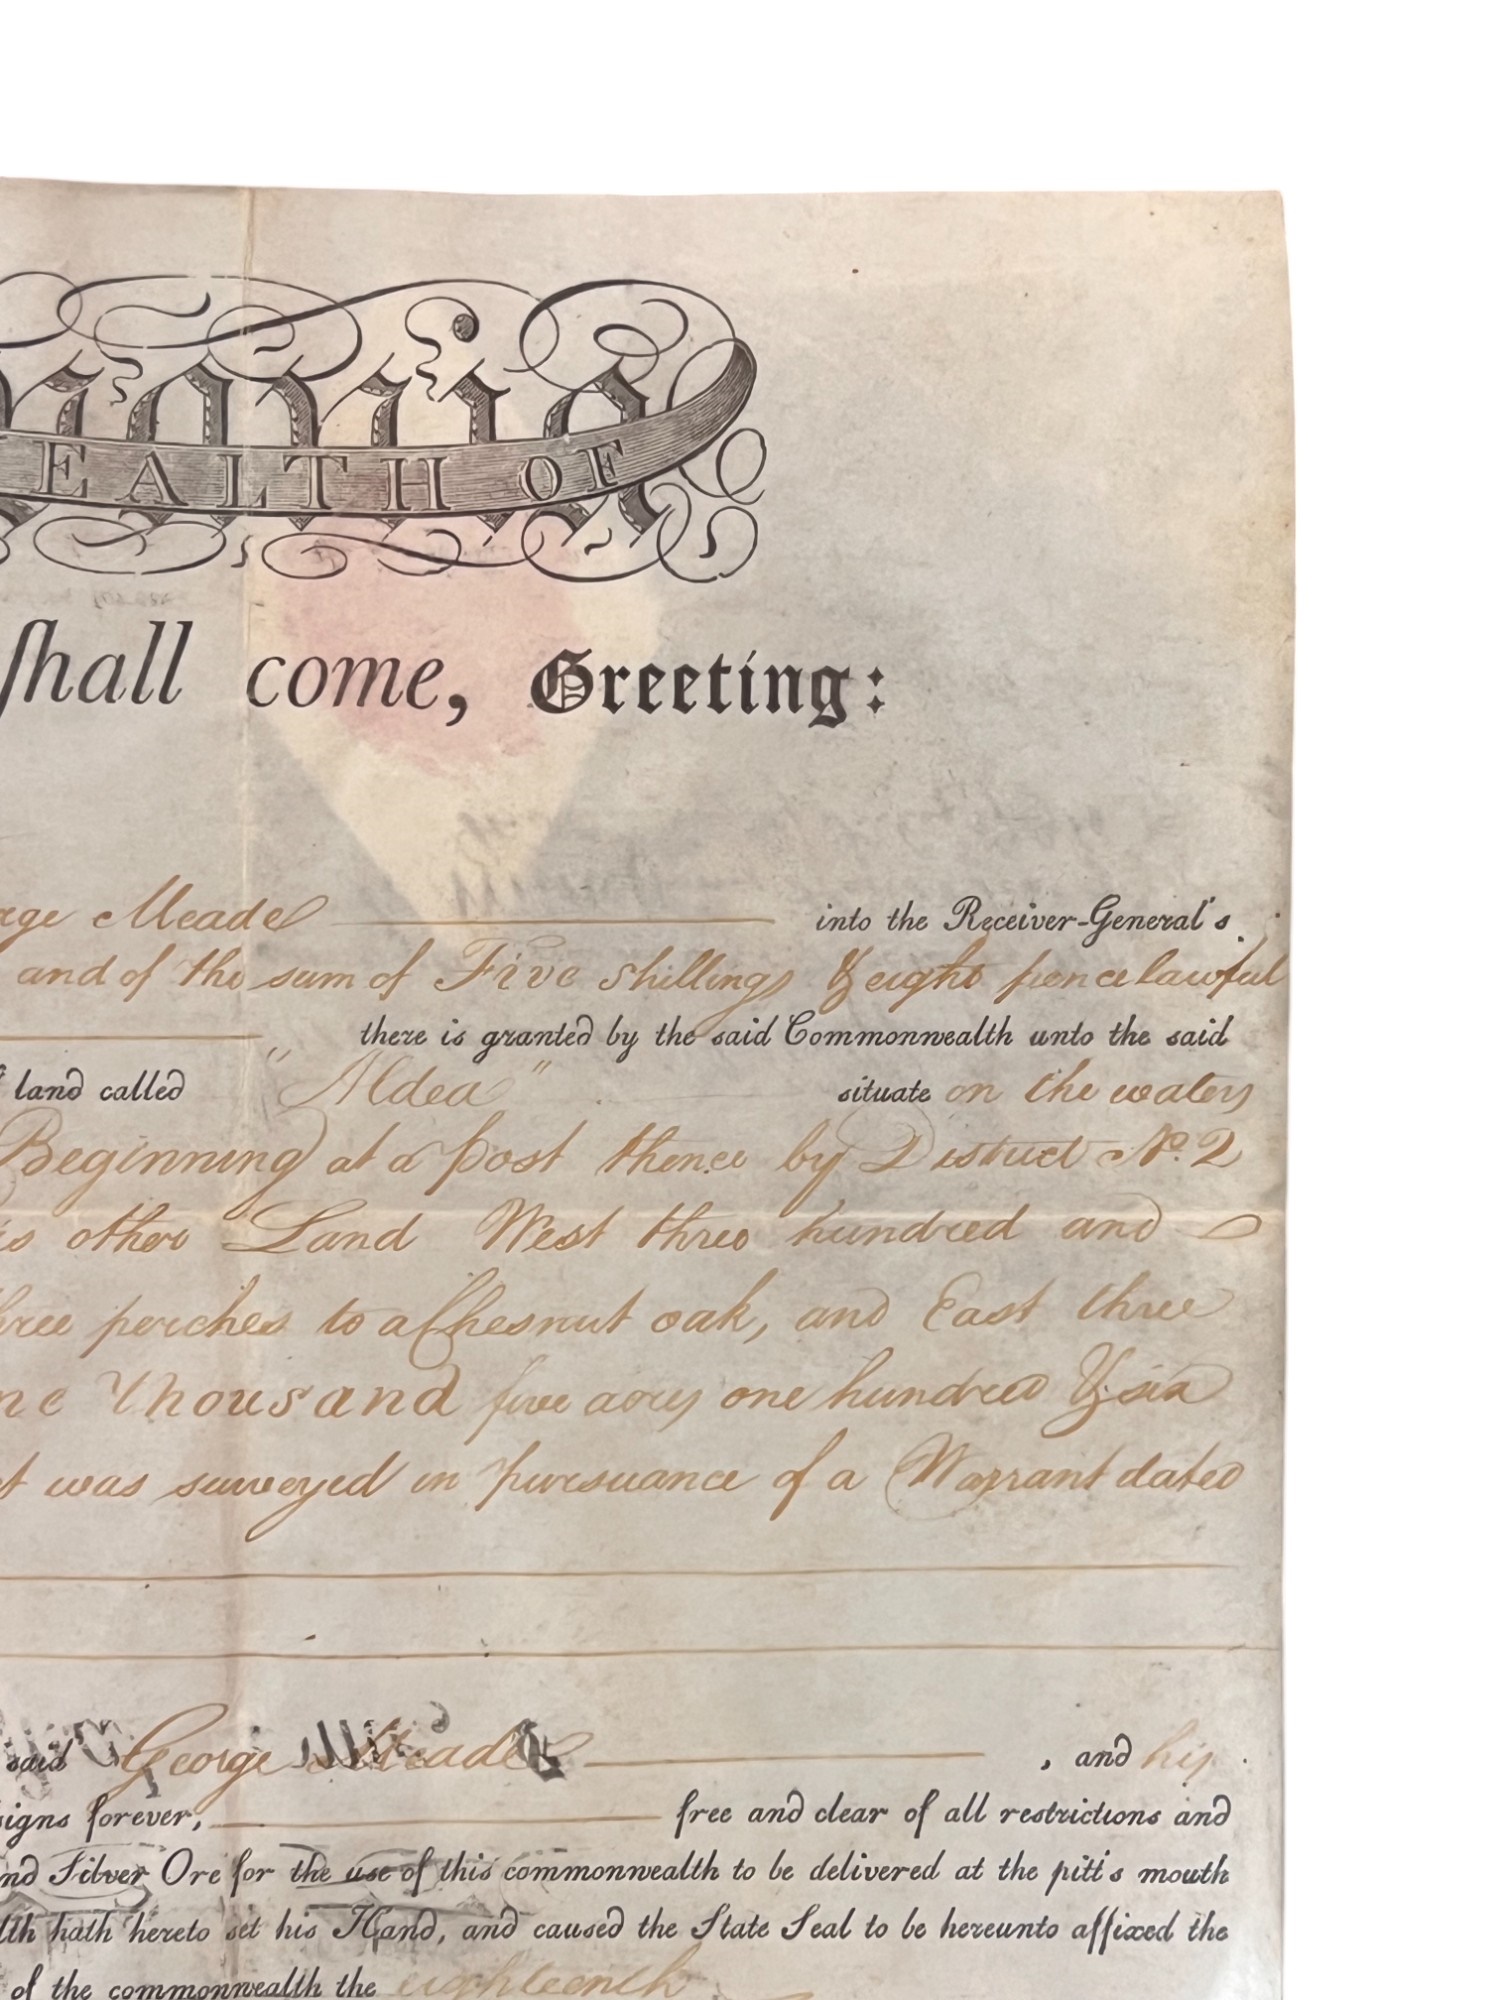 EALTH OF
ſhall come, Greeting:
rge Meade into the Receiver-General's
and of the sum of Five Shillings & eight pence lawful
there is granted by the said Commonwealth unto the said
land called "Aldea" situate on the waters
Beginning at a post thence by District No. 2
is other Land West three hundred and
hree perches to a Chesnut oak, and East three
ne thousand five acres one hundred & six
t was surveyed in pursuance of a Warrant dated
said George Meade , and his
signs forever, free and clear of all restrictions and
nd Silver Ore for the use of this commonwealth to be delivered at the pitt's mouth
lth hath hereto set his Hand, and caused the State Seal to be hereunto affixed the
of the commonwealth the eighteenth